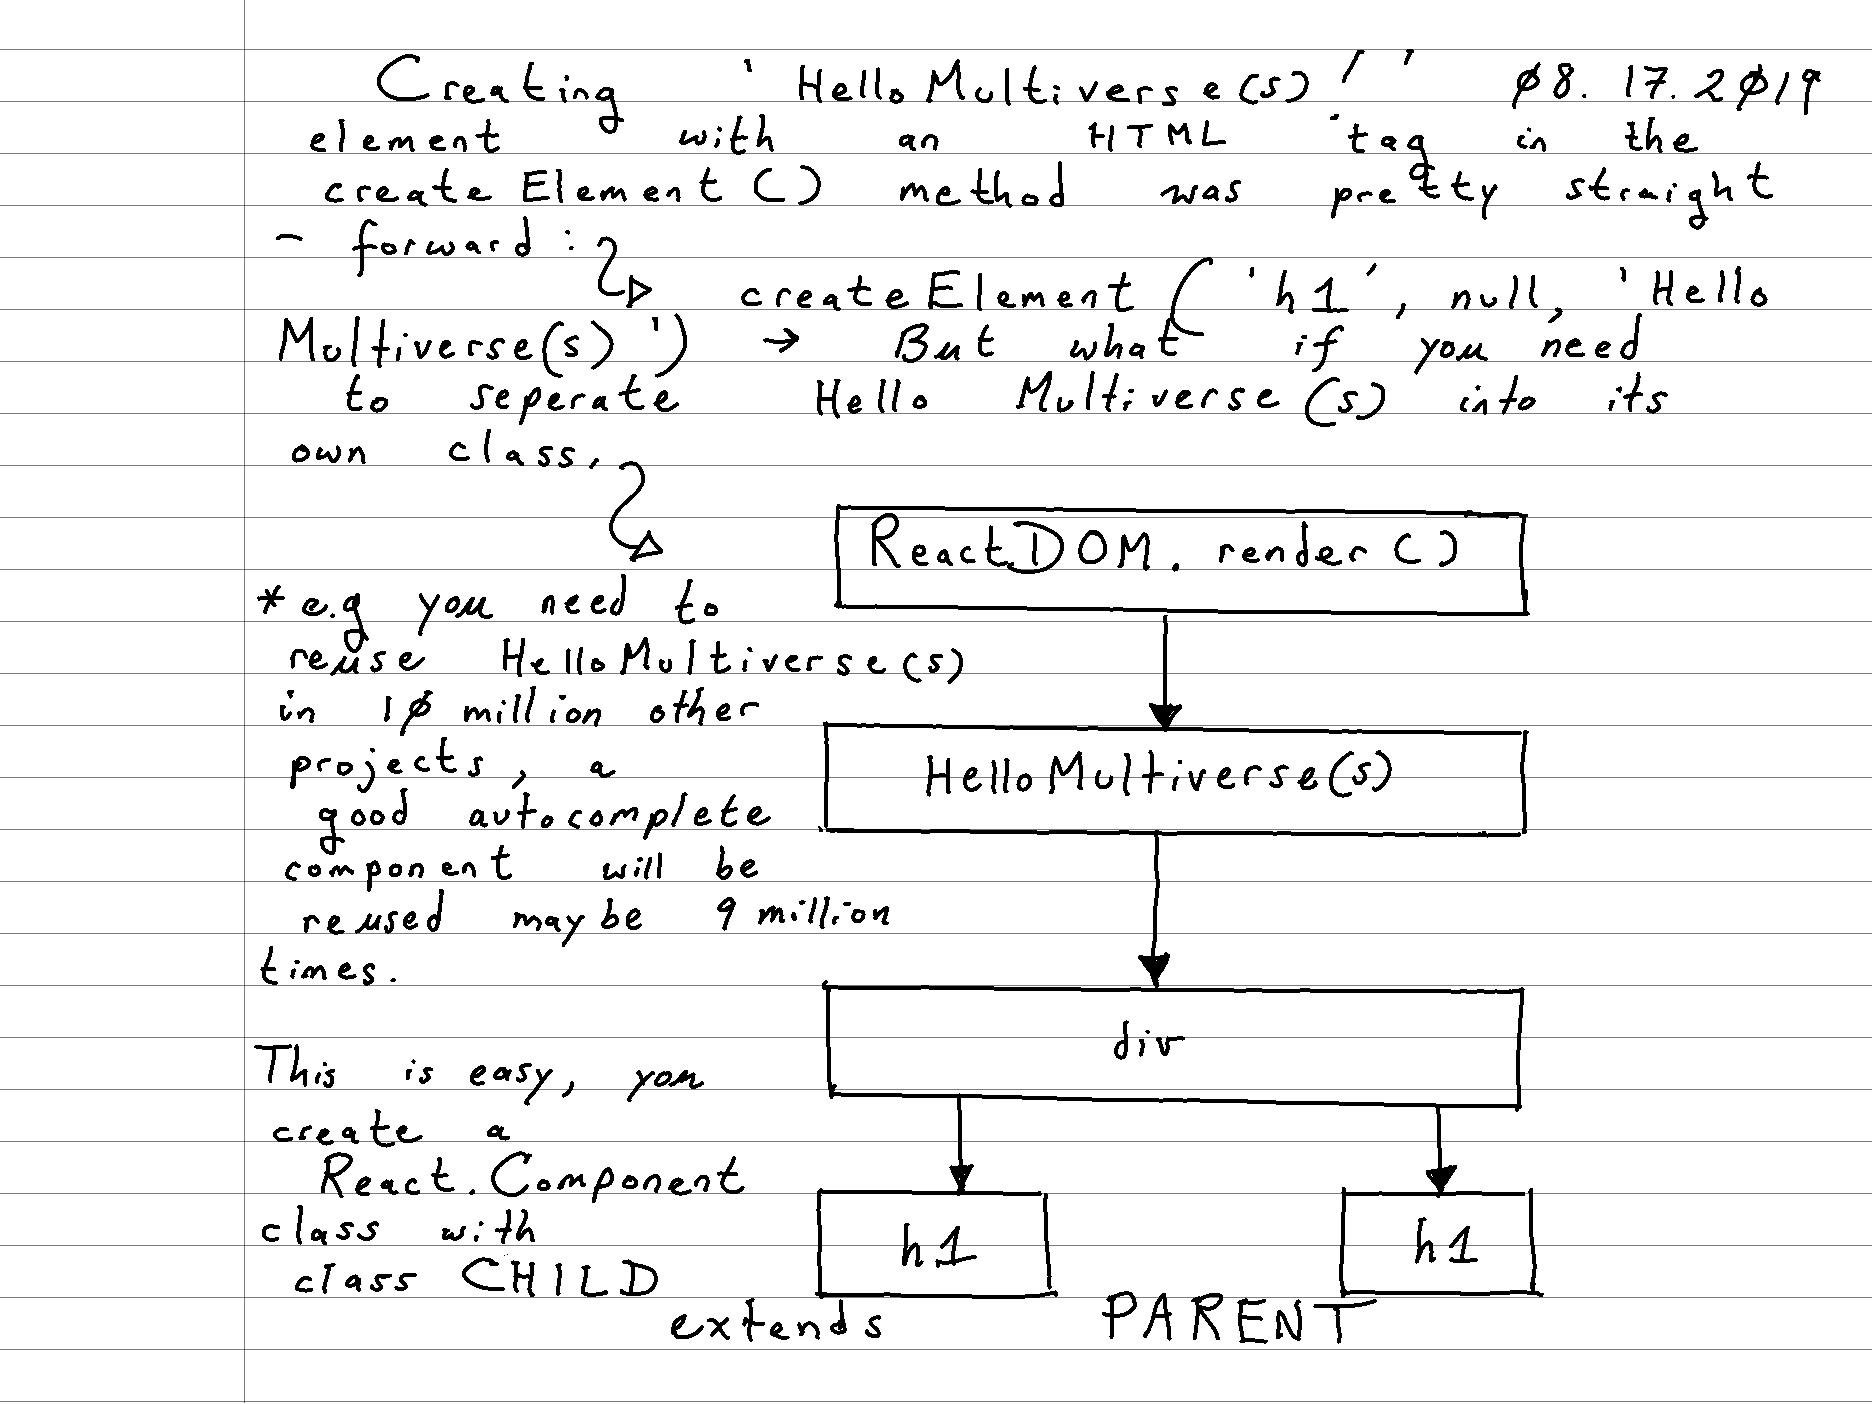 Creating 'HelloMultiverse(s)!' 08.17.2019
element with an HTML tag in the
createElement() method was pretty straight
- forward:
createElement('h1', null, 'Hello
Multiverse(s)') → But what if you need
to seperate Hello Multiverse(s) into its
own class,
ReactDOM.render()
* e.g you need to
reuse HelloMultiverse(s)
in 10 million other
projects, a
good autocomplete
component will be
reused maybe 9 million
times.
HelloMultiverse(s)
div
This is easy, you
create a
React.Component
class with
class CHILD
extends PARENT
h1
h1